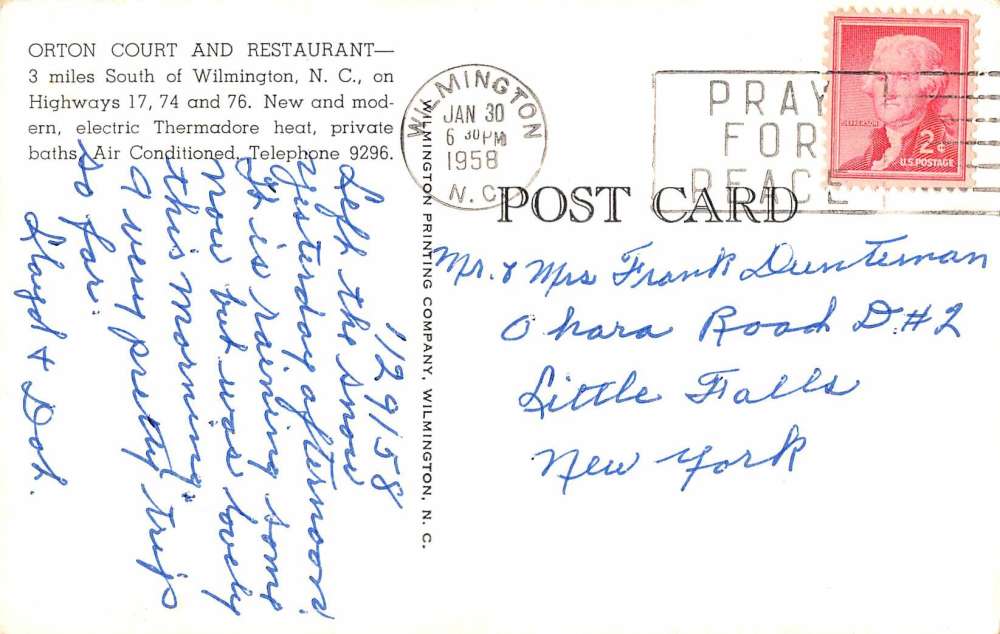 ORTON COURT AND RESTAURANT—
3 miles South of Wilmington, N. C., on
Highways 17, 74 and 76. New and mod-
ern, electric Thermadore heat, private
baths, Air Conditioned. Telephone 9296.
1/29/58
Left the snow
yesterday afternoon.
It is raining some
now but was lovely
this morning.
A very pretty trip
so far.
Lloyd & Dot.
WILMINGTON PRINTING COMPANY, WILMINGTON, N. C.
WILMINGTON
JAN 30
6 30 PM
1958
N. C.
PRAY
FOR
PEACE
JEFFERSON
2¢
U.S. POSTAGE
POST CARD
Mr. & Mrs Frank Dunteman
Ohara Road D#2
Little Falls
New York